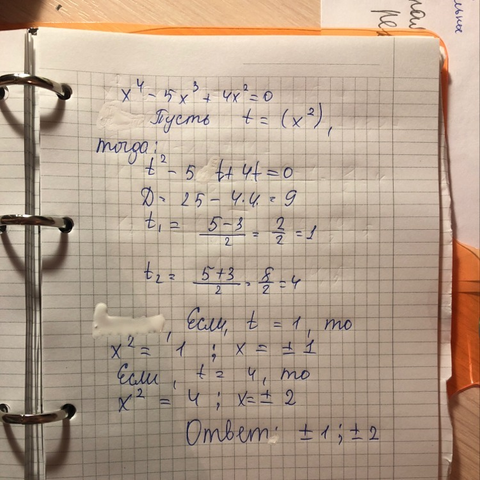 x⁴ - 5x³ + 4x² = 0
Пусть t = (x²),
тогда:
t² - 5 t + 4t = 0
D = 25 - 4·4 = 9
t₁ = (5-3)/2 = 2/2 = 1
t₂ = (5+3)/2 = 8/2 = 4
, Если, t = 1, то
x² = 1 ; x = ± 1
Если, t = 4, то
x² = 4 ; x = ± 2
Ответ: ± 1 ; ± 2